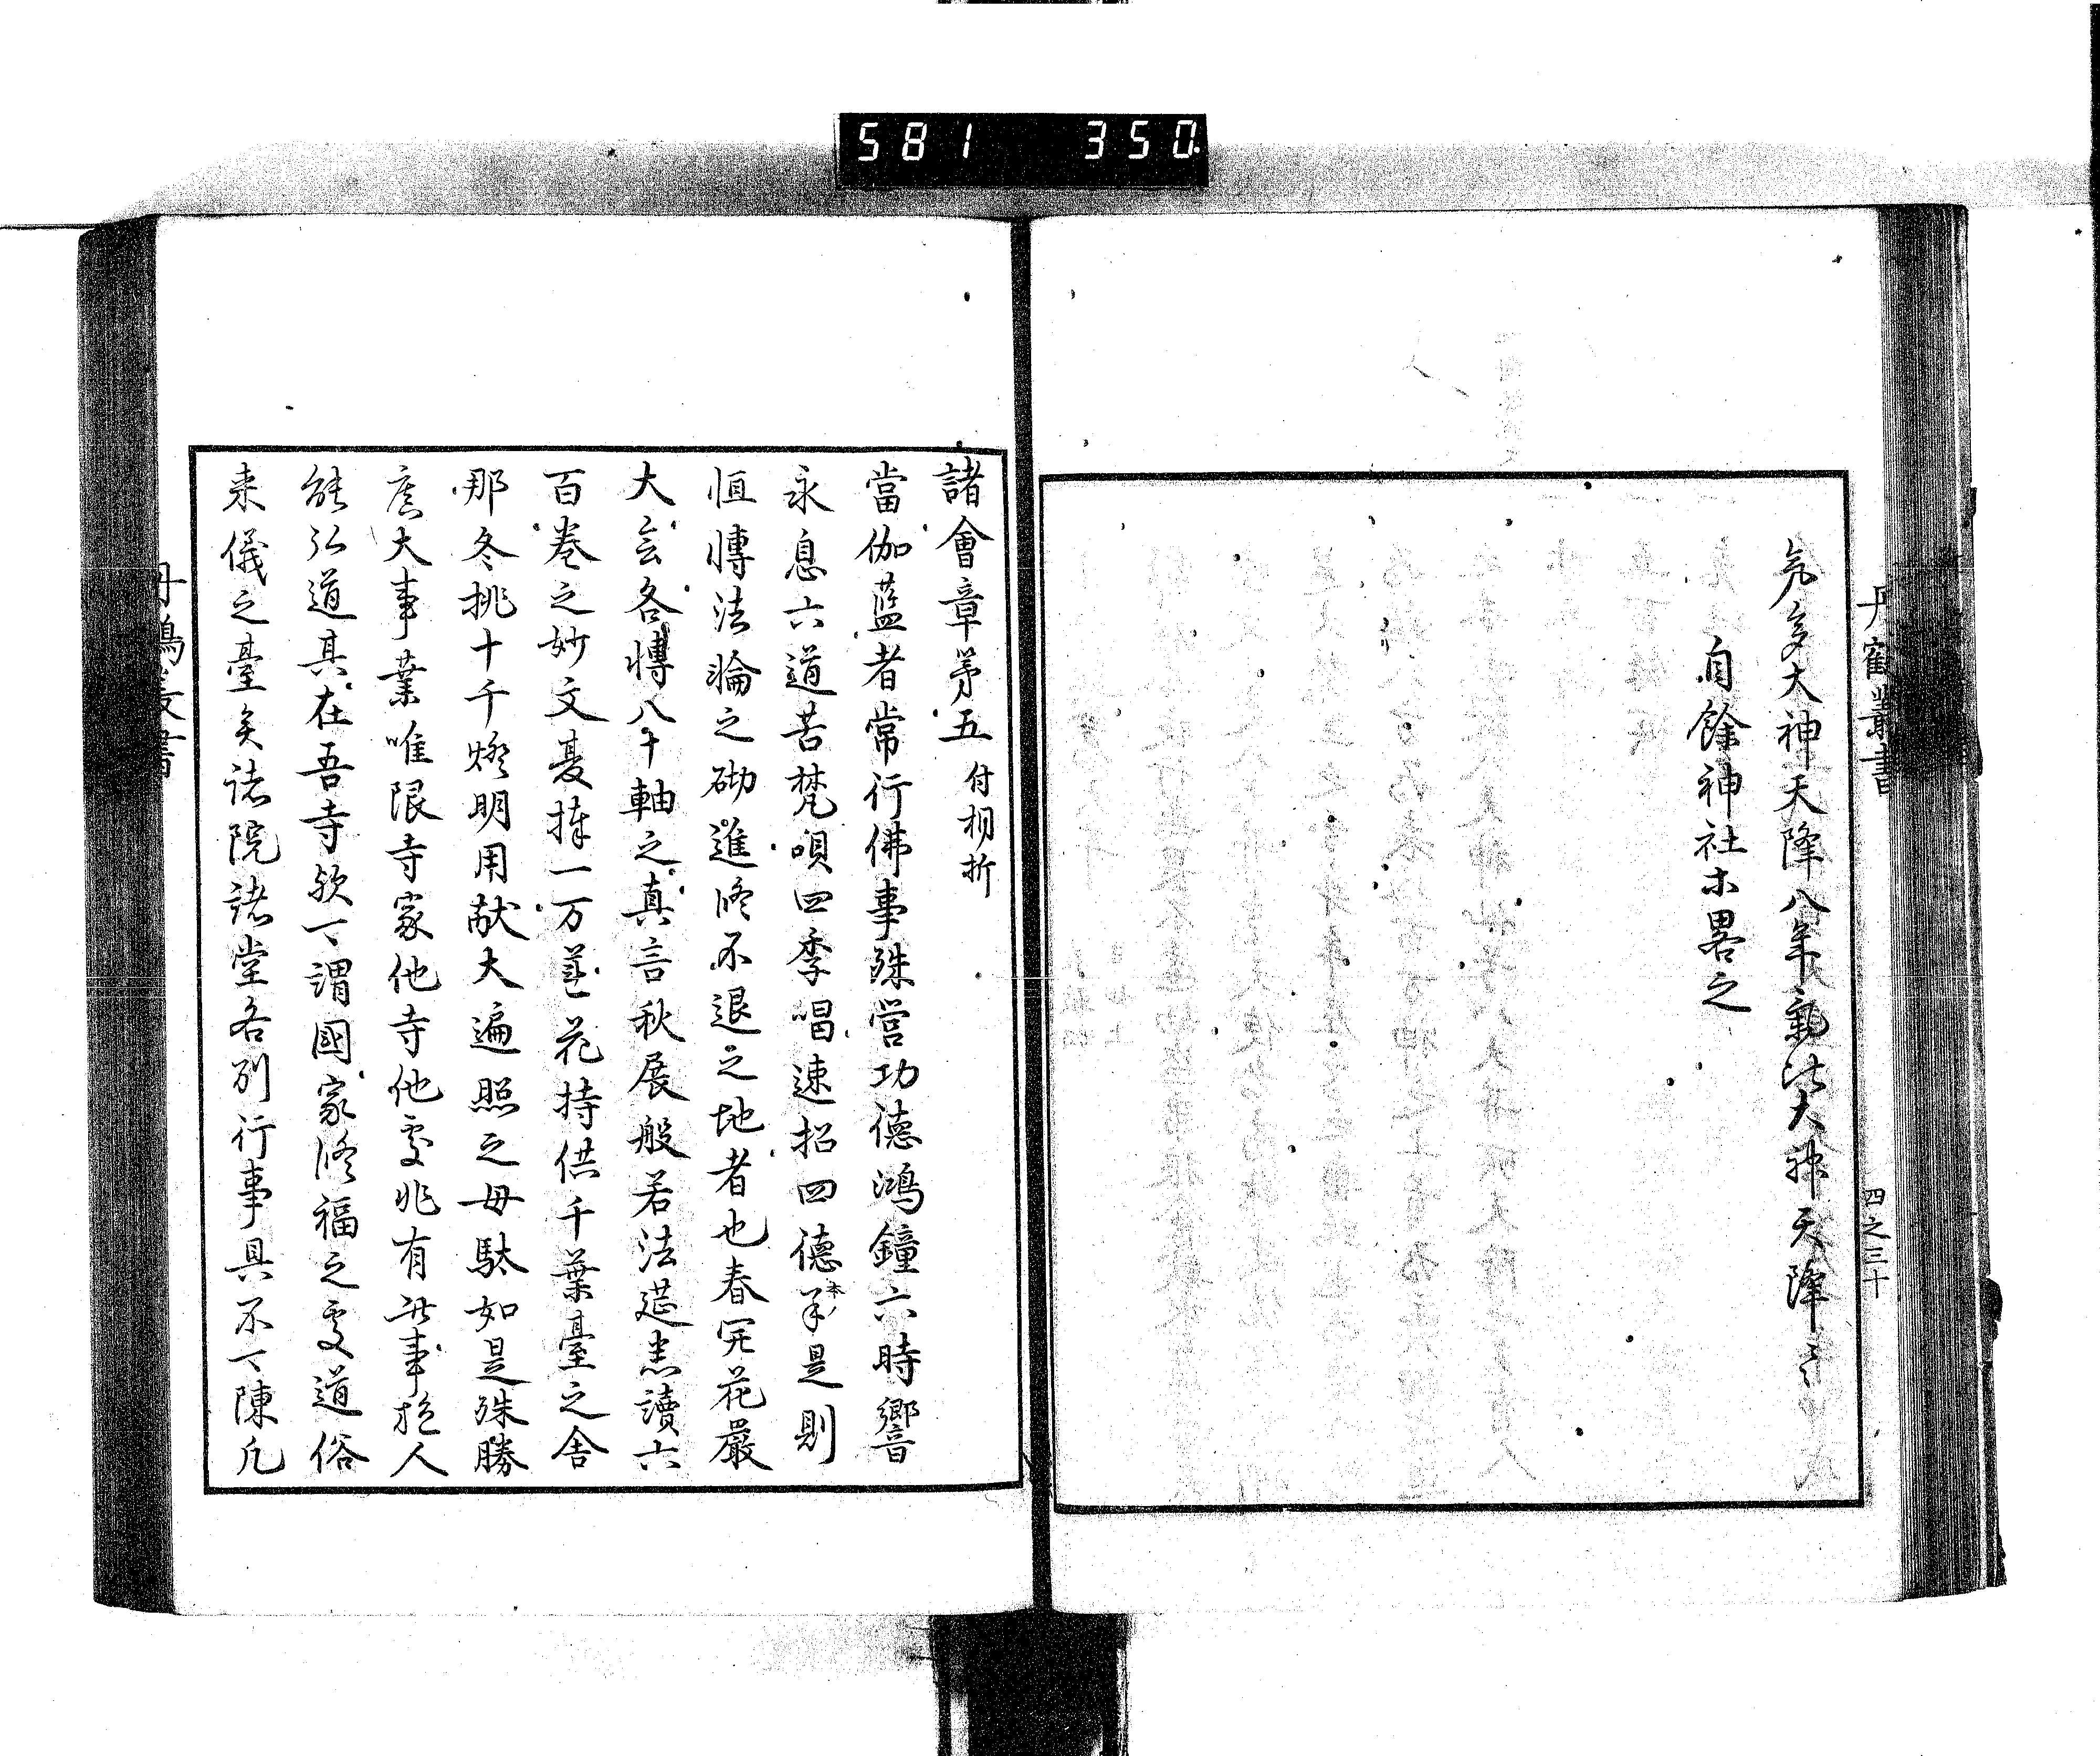 581 350
丹鶴叢書
四之三十
氣多大神天降八年新造大神天降云々
自餘神社ホ畧之
諸會章第五 付相折
當伽藍者常行佛事殊営功德鴻鐘六時響
永息六道苦梵唄四季唱速招四德是則
恒轉法輪之砌進修不退之地者也春開花嚴
大會各轉八十軸之真言秋展般若法莚悉讀六
百巻之妙文夏捧一万蓮花持供千葉臺之舎
那冬挑十千燈明用献大遍照之母駄如是殊勝
廣大事業唯限寺家他寺他處非有此事抱人
能弘道具在吾寺欤可謂國家修福之處道俗
来儀之臺矣諸院諸堂各別行事具不可陳凡
丹鶴叢書